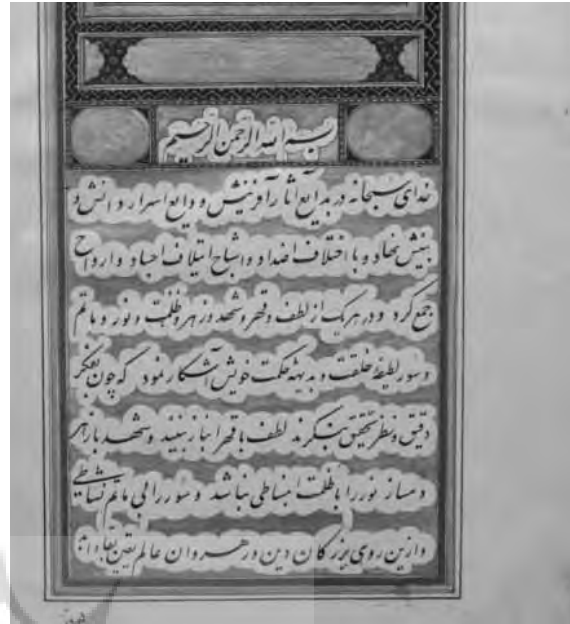 بسم الله الرحمن الرحیم
خدای سبحانه در بدایع آثار آفرینش و ودایع اسرار دانش و
بینش نهاد و با اختلاف اضداد و اشباح ایتلاف اجساد و ارواح
جمع کرد و در هر یک از لطف و قهر و شهد و زهر و ظلمت و نور و ماتم
و سور لطیفهٔ خلقت و بدیههٔ حکمت خویش آشکار نمود که چون بفکر
دقیق و نظر تحقیق بنگرند لطف با قهر انباز بینند و شهد با زهر
دمساز نور را با ظلمت انبساطی نباشد و سور را بی ماتم نشاطی
و ازین روی بزرگان دین و رهروان عالم یقین